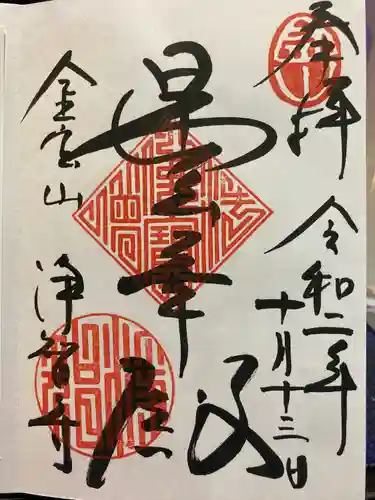 奉拝
令和二年
十月十三日
曇華殿
金宝山
浄智寺